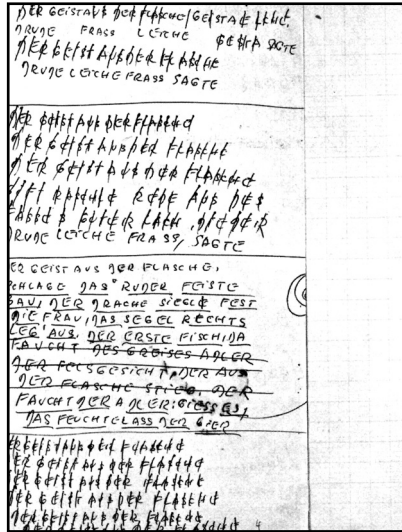 DER GEIST AUS DER FLASCHE/GEISTA
DRUDE FRASS LEICHE SAGTE
DER GEIST AUS DER FLASCHE
DRUDE LEICHE FRASS SAGTE
DER GEIST AUS DER FLASCHE
DER GEIST AUS DER FLASCHE
DER GEIST AUS DER FLASCHE
REDE AUS DES
GUTER
DRUDE LEICHE FRASS, SAGTE
ER GEIST AUS DER FLASCHE,
CHLAGE DAS RUDER FEISTE
SAU, DER DRACHE SIEGLE FEST
DIE FRAU, DAS SEGEL RECHTS
LEG' AUS. DER ERSTE FISCH, DA
TAUCHT DES GREISES ADLER
DER FELSGESICHT, DER AUS
DER FLASCHE STIEG, DER
FAUCHT DER ADLER: GIESS ES,
DAS FEUCHTE LASS DER GIER
ER GEIST AUS DER FLASCHE
ER GEIST AUS DER FLASCHE
ER GEIST AUS DER FLASCHE
DER GEIST AUS DER FLASCHE
DER GEIST AUS DER FLASCHE